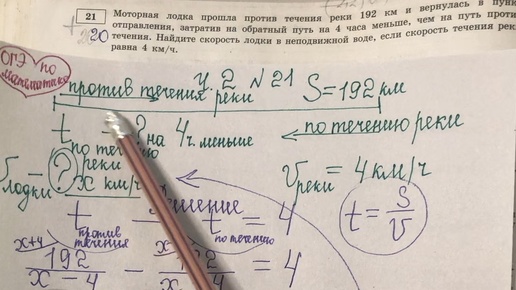 21 Моторная лодка прошла против течения реки 192 км и вернулась в пункт
отправления, затратив на обратный путь на 4 часа меньше, чем на путь против
течения. Найдите скорость лодки в неподвижной воде, если скорость течения реки
равна 4 км/ч.
20
ОГЭ по математике
У 2 №21
против течения реки S=192 км
t по течению реки - ? на 4 ч. меньше
по течению реки
V лодки - ? x км/ч
V реки = 4 км/ч
Решение
t против течения - t по течению = 4
t = S/V
x+4
192/(x-4) - = 4